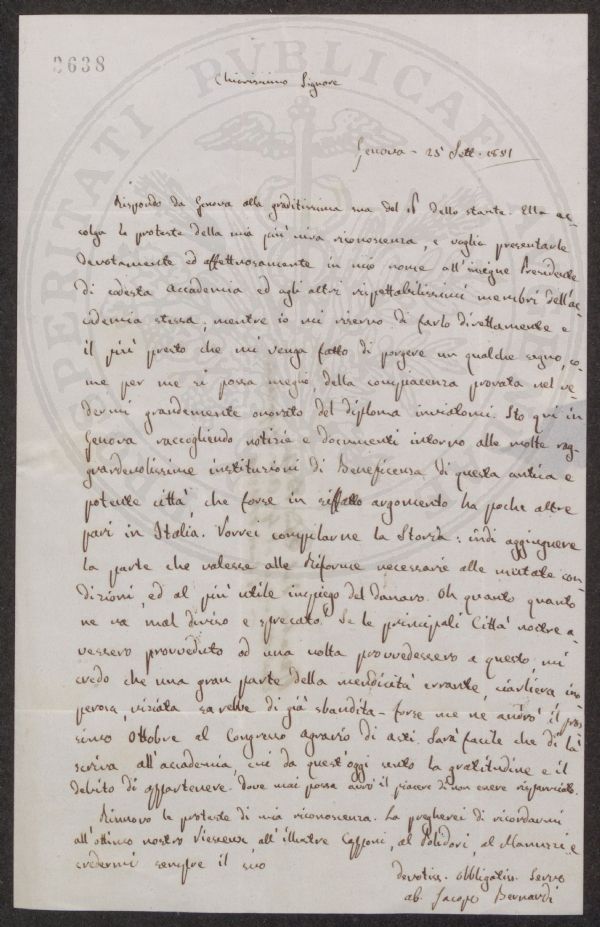 3638
PROSPERITATI PUBLICAE
Chiarissimo Signore
Genova - 25 Sett. 1851
Rispondo da Genova alla graditissima sua del dello stante. Ella ac-
colga le proteste della mia più viva riconoscenza, e voglia presentarle
devotamente ed affettuosamente in mio nome all'insigne Presidente
di codesta Accademia ed agli altri rispettabilissimi membri dell'ac-
cademia stessa, mentre io mi riservo di farlo direttamente e
il più presto che mi venga fatto di porgere un qualche segno, co-
me per me si possa meglio, della compiacenza provata nel ve-
dermi grandemente onorato del diploma inviatomi. Sto qui in
Genova raccogliendo notizie e documenti intorno alle molte rag-
guardevolissime instituzioni di Beneficenza di questa antica e
potente città, che forse in siffatto argomento ha poche altre
pari in Italia. Vorrei compilarne la Storia: indi aggiugnere
la parte che valesse alle Riforme necessarie alle mutate con-
dizioni, ed al più utile impiego del danaro. Oh quanto quanto
ne va mal diviso e sprecato! Se le principali Città nostre a-
vessero provveduto od una volta provvedessero a questo, mi
credo che una gran parte della mendicità errante, ciarliera ino-
perosa, viziata sarebbe di già sbandita - forse me ne andrò il pros-
simo Ottobre al Congresso agrario di Asti. Sarà facile che di là
scriva all'accademia, cui da quest'oggi sento la gratitudine e il
debito di appartenere. Dove mai possa avrò il piacere di non essere risparmiato.
Rinnovo le proteste di mia riconoscenza. La pregherei di ricordarmi
all'ottimo nostro Viesseux all'illustre Capponi, al Polidori, al Manuzzi e
credermi sempre il suo
devotiss. obbligatiss. Servo
ab. Jacopo Bernardi